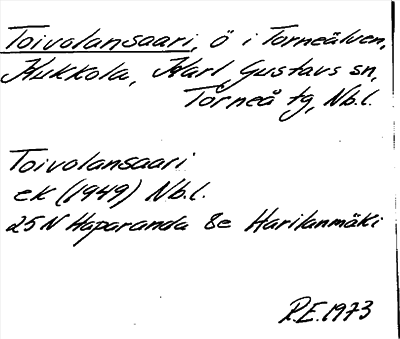 Toivolansaari, ö i Torneälven,
Kukkola, Karl Gustavs sn,
Torneå tg, Nb.l.
Toivolansaari
ek (1949) Nb.l.
25N Haparanda 8e Harilanmäki
R.E. 1973